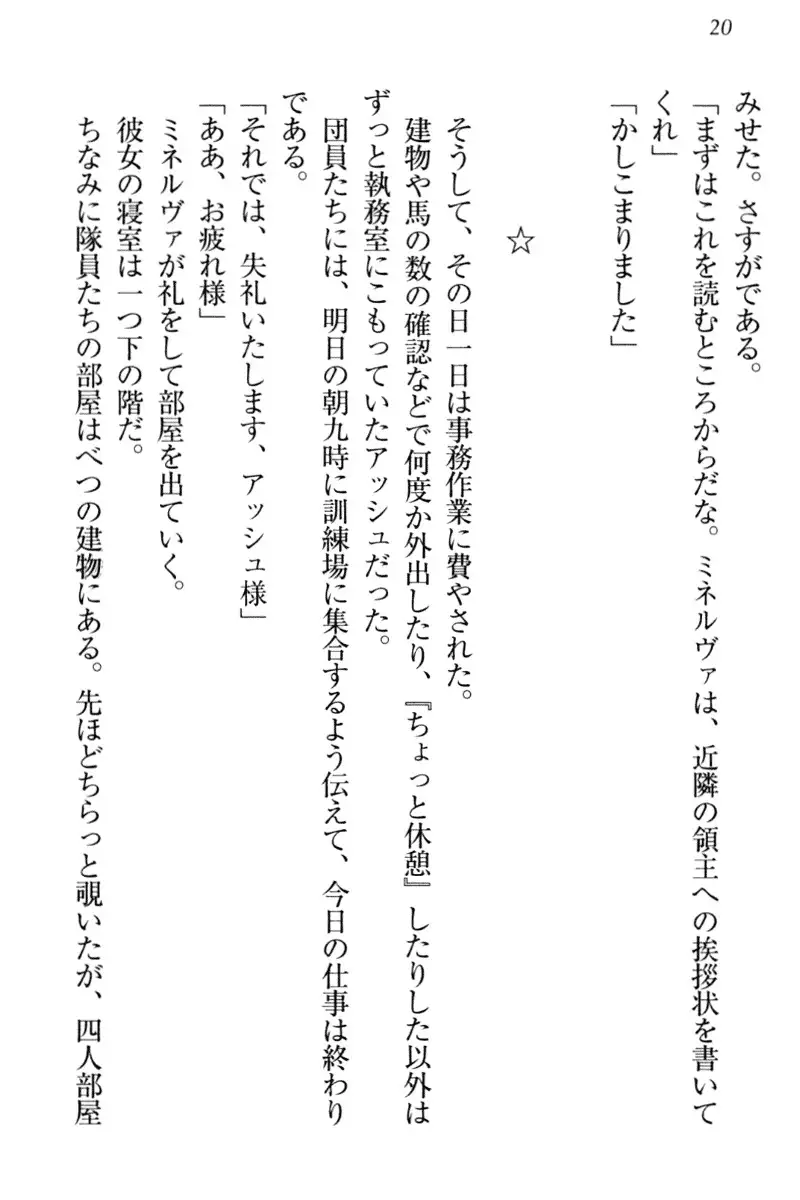 20
みせた。さすがである。
「まずはこれを読むところからだな。ミネルヴァは、近隣の領主への挨拶状を書いて
くれ」
「かしこまりました」
☆
そうして、その日一日は事務作業に費やされた。
建物や馬の数の確認などで何度か外出したり、『ちょっと休憩』したりした以外は
ずっと執務室にこもっていたアッシュだった。
団員たちには、明日の朝九時に訓練場に集合するよう伝えて、今日の仕事は終わり
である。
「それでは、失礼いたします、アッシュ様」
「ああ、お疲れ様」
ミネルヴァが礼をして部屋を出ていく。
彼女の寝室は一つ下の階だ。
ちなみに隊員たちの部屋はべつの建物にある。先ほどちらっと覗いたが、四人部屋